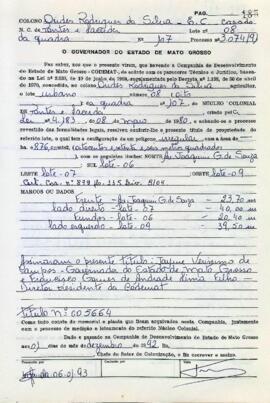 PAG. 185
COLONO Eudes Rodrigues da Silva - E.C. casado
N. C. de Pontes e Lacerda Lote nº 08
da quadra nº 107 Proc. 3.074/91
O GOVERNADOR DO ESTADO DE MATO GROSSO
Faz saber, aos que o presente virem, que havendo a Companhia de Desenvolvimento
do Estado de Mato Grosso - CODEMAT, de acordo com os pareceres Técnico e Jurídico, baseado
de 1970, concedido, ao colono Eudes Rodrigues da Silva o lote
urbano nº 08 oito
da quadra nº 107 DO NÚCLEO COLONIAL
Pontes e Lacerda
revestido das formalidades legais, resolve expedir-lhe o presente título de propriedade
do referido lote, o qual tem a configuração de um polígono irregular com a área de
876, (oitocentos e setenta e seis metros quadrados)
com os seguintes limites: NORTE Av Joaquim G. de Souza
SUL lote-06
LESTE lote-07 OESTE lote-09
MARCOS OU DADOS
Frente - Av Joaquim G. de Souza - 23,70 m
lado direito - lote-07 - 40,00 m
fundos - lote-06 - 20,40 m
lado esquerdo - lote-09 - 39,50 m
Assinaram o presente título: Jayme Veríssimo de
Campos - Governador do Estado de Mato Grosso
e Francisco Gomes de Andrade Lima Filho -
Diretor Presidente da Codemat
Título Nº 005664
Como tudo consta do memorial e planta que ficam arquivados nesta Companhia, juntamente
com o processo de medição e loteamento do referido Núcleo Colonial.
Dado e passado na Companhia de Desenvolvimento do Estado de Mato Grosso
aos 01 dias de dezembro de 1992. Eu
Chefe do Setor de Colonização, o fiz escrever e assino.
06.01.93